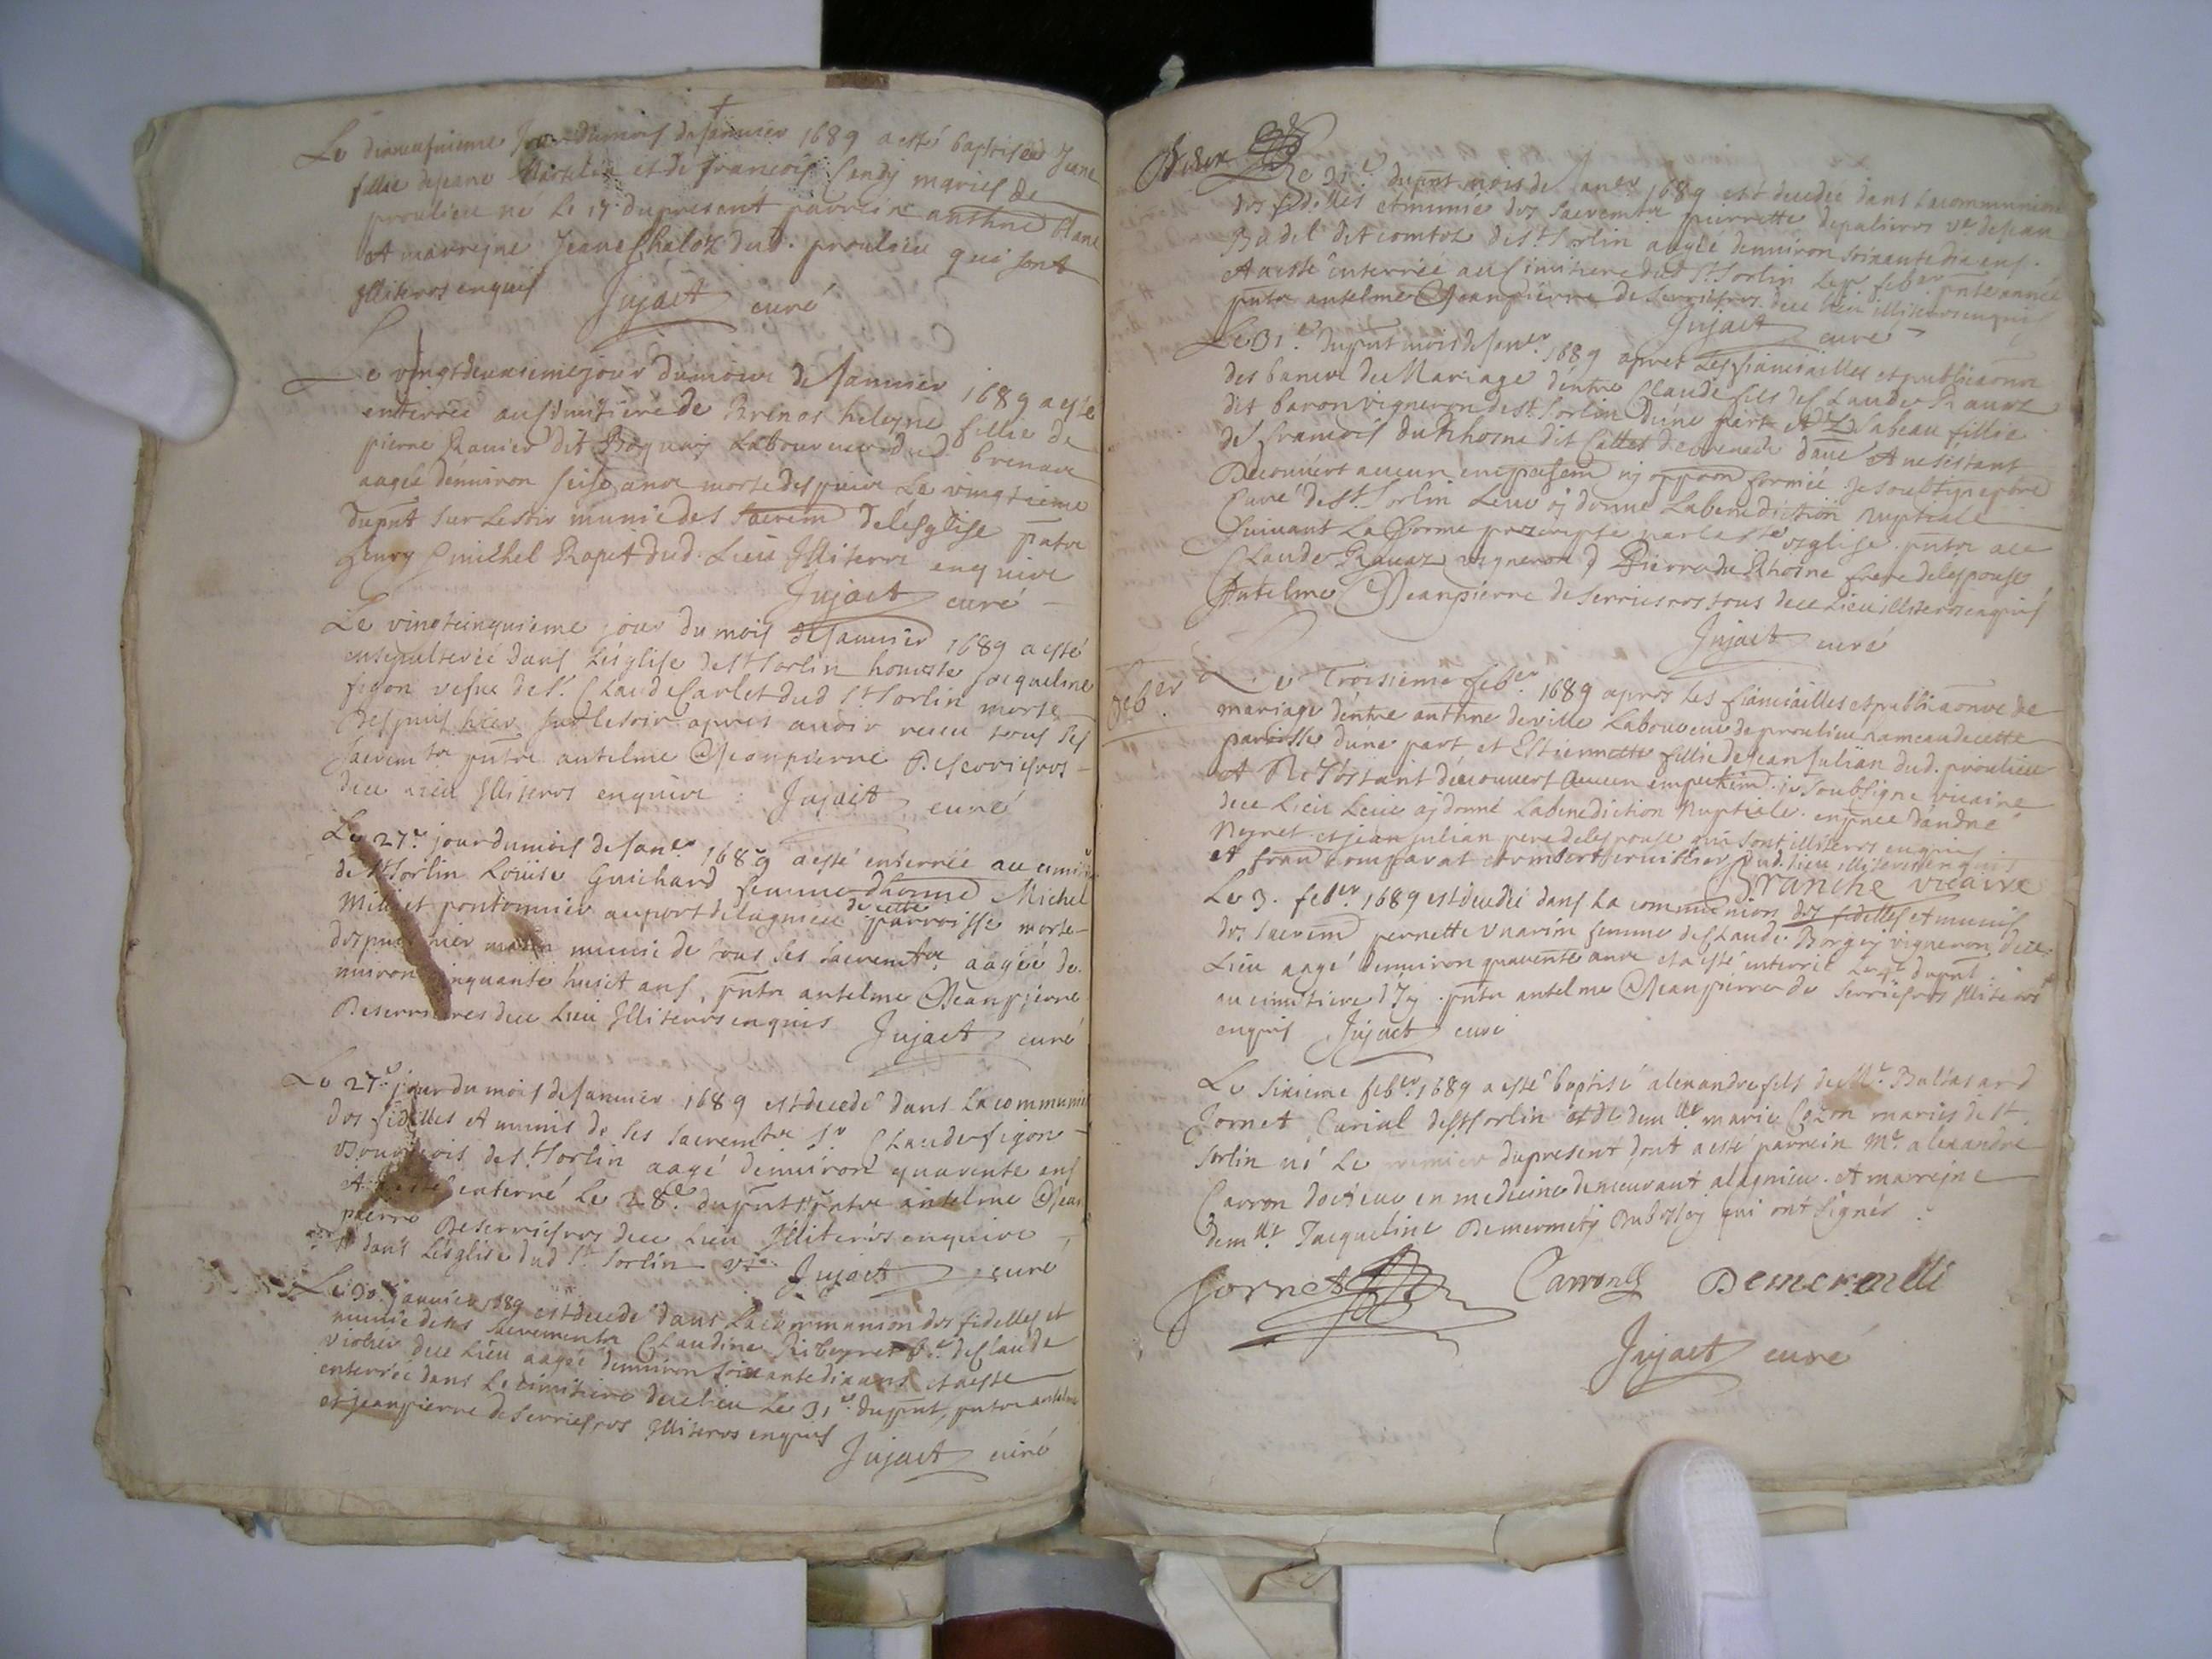 Le dixneufuieme Jour dumois deJanuier 1689 a esté baptisée Jeane
fillie dejeane et de francois Candy mariés de
proulieu né Le 17. dupresant parrein anthme blanc
et marrejne Jeane Chaloz dud. proulieu qui sont
Illiteros enquis Jujact curé
Le vingtdeuxiemejour dumois deJanuier 1689 a esté
enterrée aucimitiere de Brenos heleyne fillie de
pierre Rauier dit Boguay Laboureur dud. brenaz
aagée denuiron seise ans morte despuis Le vingtieme
dupnt sur Lesoir munie des sacrem delesglise pntz
henry Guichel Rapet dud. Lieu Illiteros enquis
Jujact curé
Le vingtcinquieme jour du mois deJanuier 1689 a esté
ensepulterée dans Lésglise deSt Sorlin honeste Jacqueline
figon vefue de Sr. Claude Carlet dud St Sorlin morte
despuis hier sur lesoir apres auoir receu tous ses
sacremts pntz antelme Jeanpierre Deserrieros
dece Lieu Illiteros enquis : Jujact curé
Le 27e. jour dumois deJaner. 1689 a esté enterrée au cimit
deSt Sorlin Loüise Guichard femme dhonne Michel
Milliet pontonnier auport delagnieu de cette parroisse morte
despuis hier matin munie de tous ses sacremts. aagée de
nuiron cinquante huict ans, pntz antelme Jeanpierre
Deserrieres dece Lieu Illiteros enquis Jujact curé
Le 27e. jour du mois deJanuier 1689 est decedé dans La communi
des fidelles et munis de ses sacremts Sr Claude figon
Bourgeois deSt. Sorlin aagé denuiron quarente ans
et a esté enterré Le 28e. dupnt pntz antelme Jean
pierre Deserrieros dece Lieu Illiteros enquis
dans Lésglise dud St. Sorlin Jujact curé
Le 30. januier 1689 est decedé dans La communion des fidelles et
munie deses sacrements Claudine Ribeyret ve. deClaude
violier dece Lieu aagée denuiron soixantedix ans et a esté
enterrée dans Le cimitiere dece lieu Le 31e. dupnt, pntz antelme
et jeanpierre deserrieros Illiteros enquis
Jujact curé
Le 31e. dupnt mois de Janer 1689 est decedée dans La communion
des fidelles et munie des sacremts pierrette depalieros ve deJean
Badel dit comtoz deSt. Sorlin aagée denuiron soixantedix ans.
et a esté enterrée aucimitiere dud St. Sorlin Le pr feber. pnte année
pntz antelme Jeanpierre de serrieros dece lieu illiteros enquis
Jujact curé
Le 31e. dupnt mois deJaner. 1689 apres Lesfiancialles et publicaons
des bancs du Mariage dentre Claude fils de Claude Rauaz
dit baron vigneron deSt. Sorlin d'une part et Isabeau fillie
de francois du Rhosne dit Callet dece d'aue et nesestant
Decouuert aucun empesem ny oppaon formée. Je soubsigné pbre
Curé deSt. Sorlin Leur ay donné Labenediction nuptiale
Suiuant La forme prescripte par la ste esglise. pntz ace
Claude Rauaz vigneron & Pierre du Rhosne frere delespouse
Antelme Jeanpierre de serrieros tous dece Lieu illiteros enquis
Jujact curé
feber.
Le Troisieme feber. 1689 apres les fiancialles et publicaons de
mariage d'entre anthme deville Laboureur de proulieu hameau decette
paroisse d'une part et Estiennette fillie deJean Julian dud. proulieu
et Ne s'estant découuert Aucun empechem. je Soubsigné vicaire
dece Lieu Leur aj donné Labenediction Nuptiale. en pnce d'andré
Neyret et jean julian pere delespouse qui sont illiteros enquis
et franc comparat et dud. lieu illiteros enquis
Branche vicaire
Le 3. feber. 1689 est decedée dans La communion des fidelles et munie
des sacrem pernette vuarin femme deClaude Borgey vigneron dece
Lieu aagé denuiron quarente ans et a esté enterrée Le 4e dupnt.
au cimitiere d'Icy. pntz antelme Jeanpierre de serrieros Illiteros
enquis Jujact curé
Le sixieme feber. 1689 a esté baptisé alexandre fils de Mr. Baltasard
Jornet, Curial deSt Sorlin et de demlle. marie Cozon mariés de St
Sorlin né Le premier dupresent, dont a esté parrein Mr. alexandre
Carron docteur en medecine demeurant alagnieu. et marrejne
demlle. Jacqueline Demermety Dubossey qui ont signés.
Jornet Carron Demermeti
Jujact curé